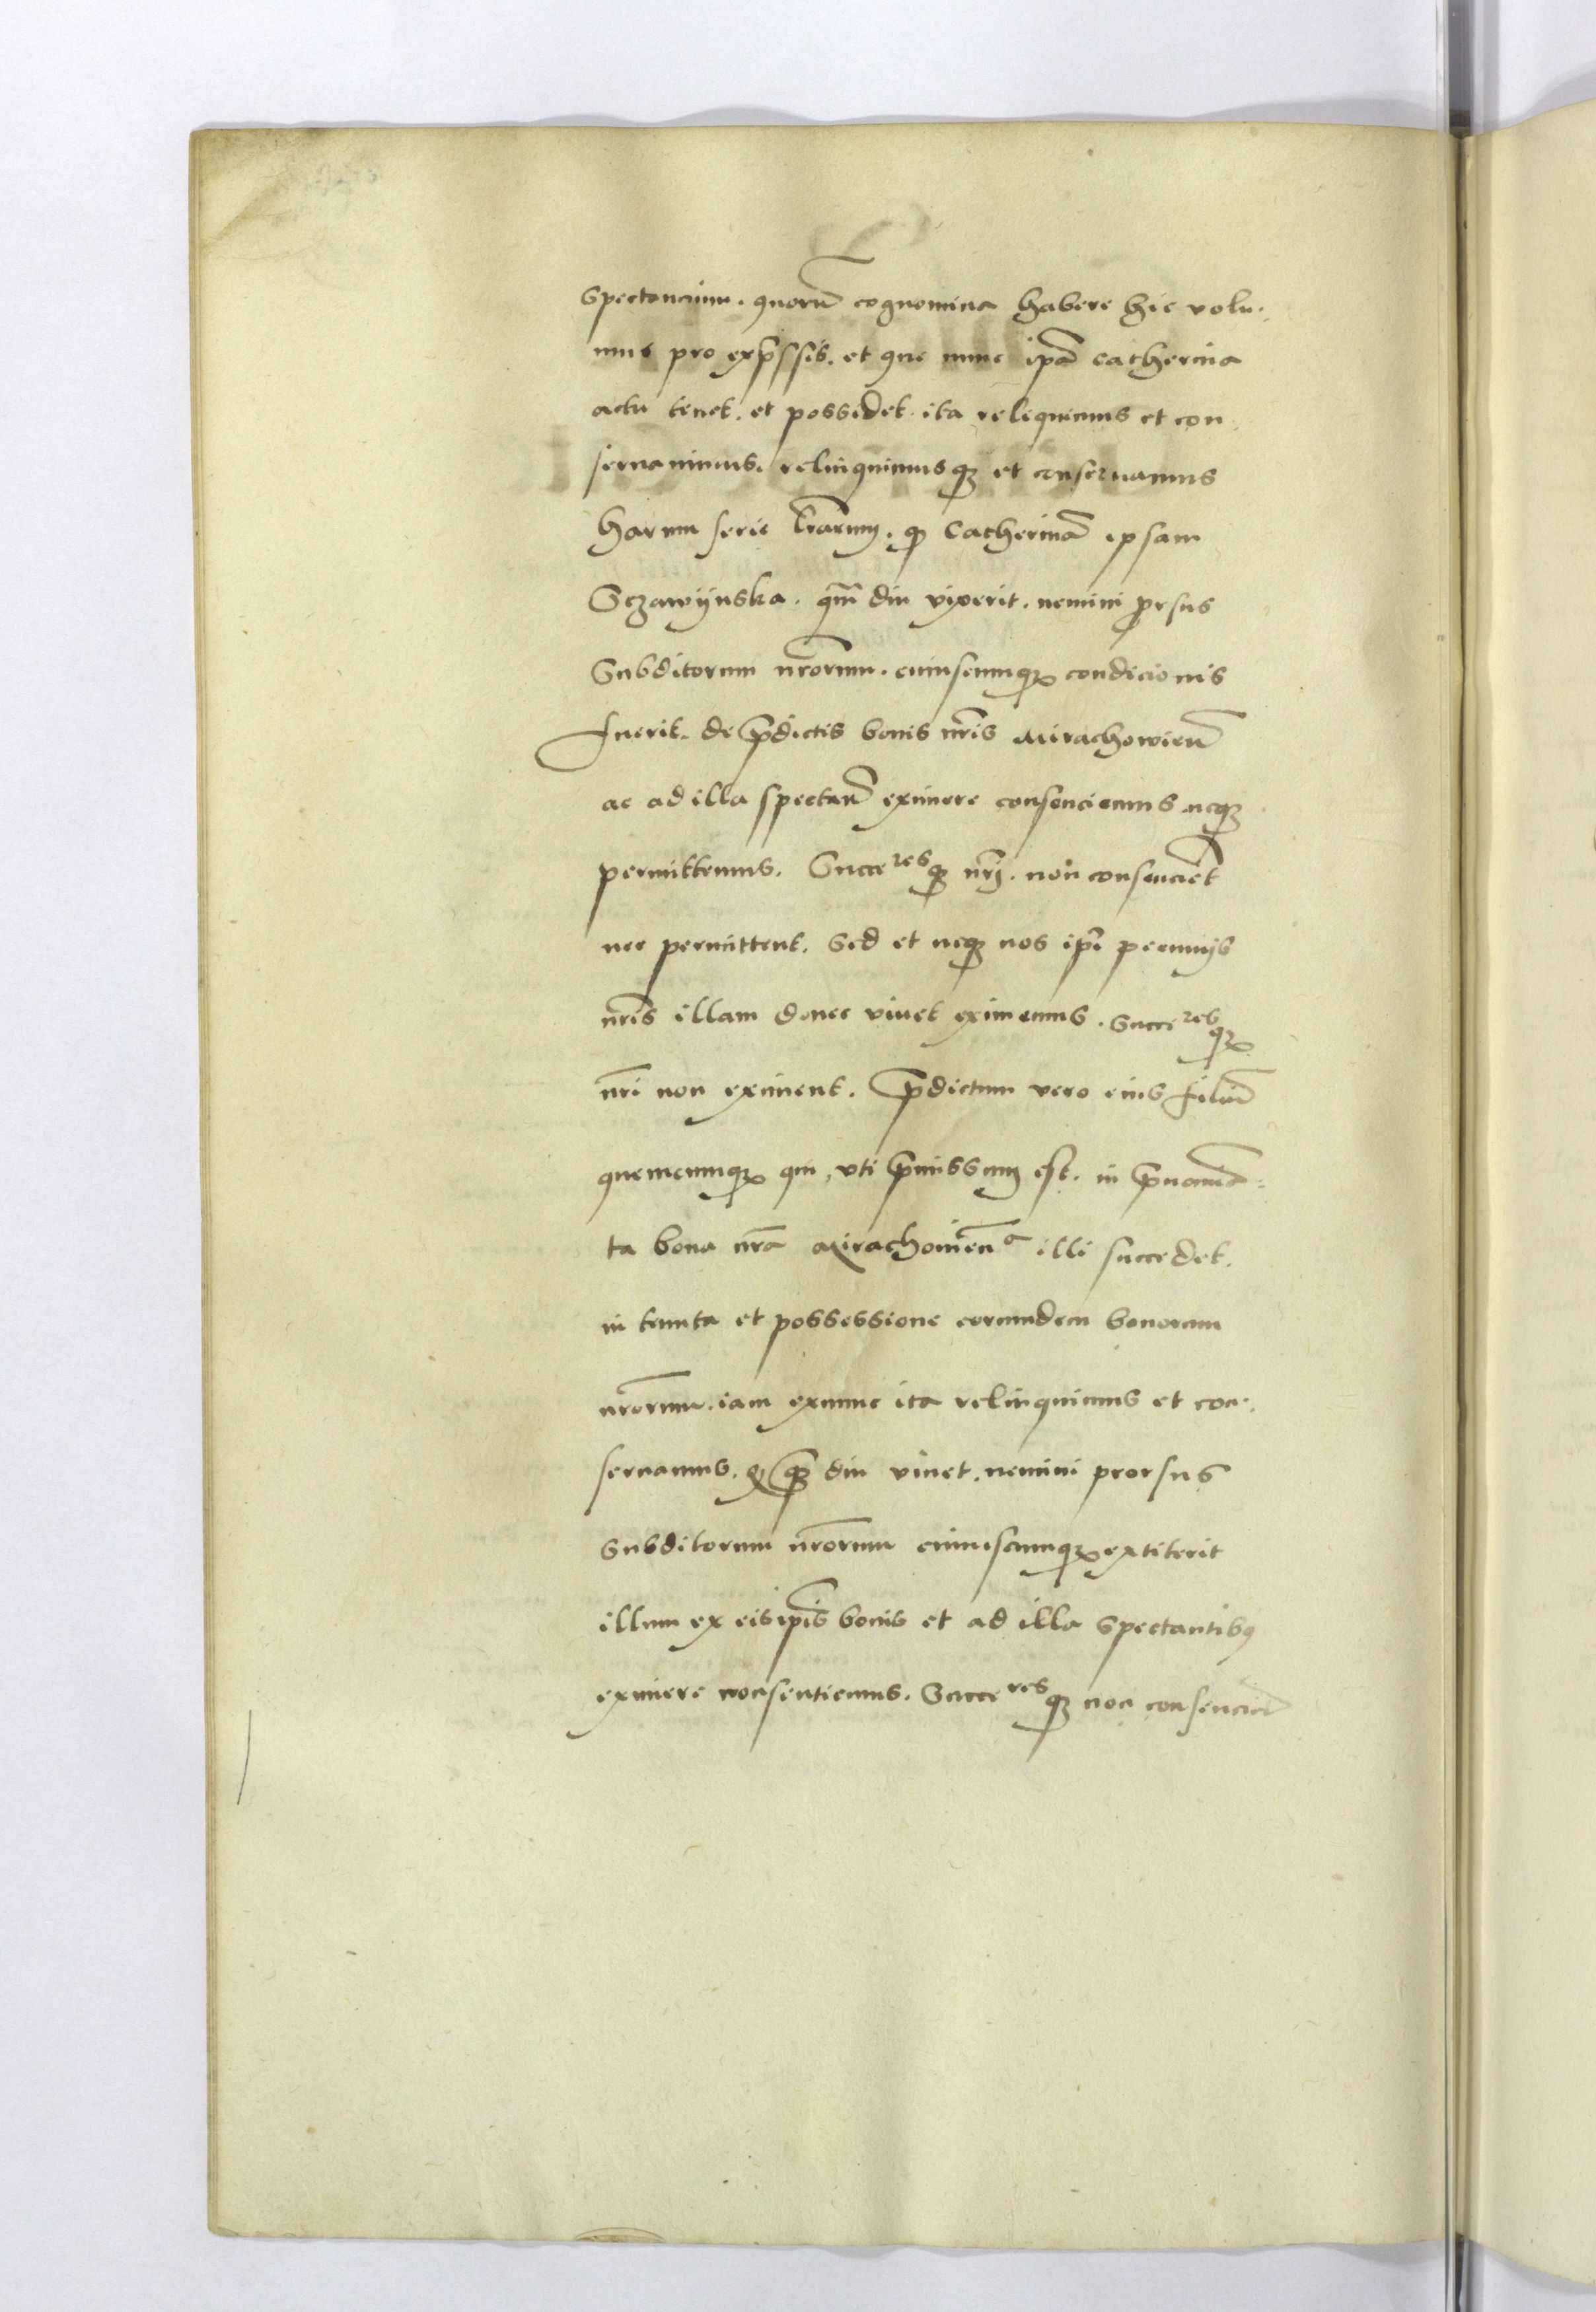 spectancium. quorū cognomina habere hic volu.
mus pro exp̄ssis. et que nunc ip̄a catherina
actu tenet. et possidet. ita reliquimus et con
seruauimus. relinquimusq3 et conseruamus
harum serie l̄rarum. q3 Catherinā ipsam
Sczawÿnska. qm̄ diu vixerit. nemini prsus
Subditorum nr̄orum. cuiuscumq3 condicionis
fuerit. de p̄dictis bonis nr̄is Mirachowien̄
ac ad illa spectan̄ eximere consenciemus neq3
permittemus. Succeresq3 nr̄j. non consencient
nec permittent. Sed et neq3 nos ip̄i pecunijs
nr̄is illam donec viuet eximemus. Succeresq3
nr̄i non eximent. p̄dictum vero eius filiū
quemcumq3 qui, vti p̄missum est. in p̄nomina
ta bona nr̄a Mirachowien̄a illi succedet.
in tenuta et possessione eorumdem bonorum
nr̄orum. iam exnunc ita relinquimus et con.
seruamus. q3 diu viuet. nemini prorsus
subditorum nr̄orum cuiuscumq3 extiterit
illum ex eis ip̄is bonis et ad illa spectantibꝯ
eximere consentiemus. Succeresq3 non consencien̄